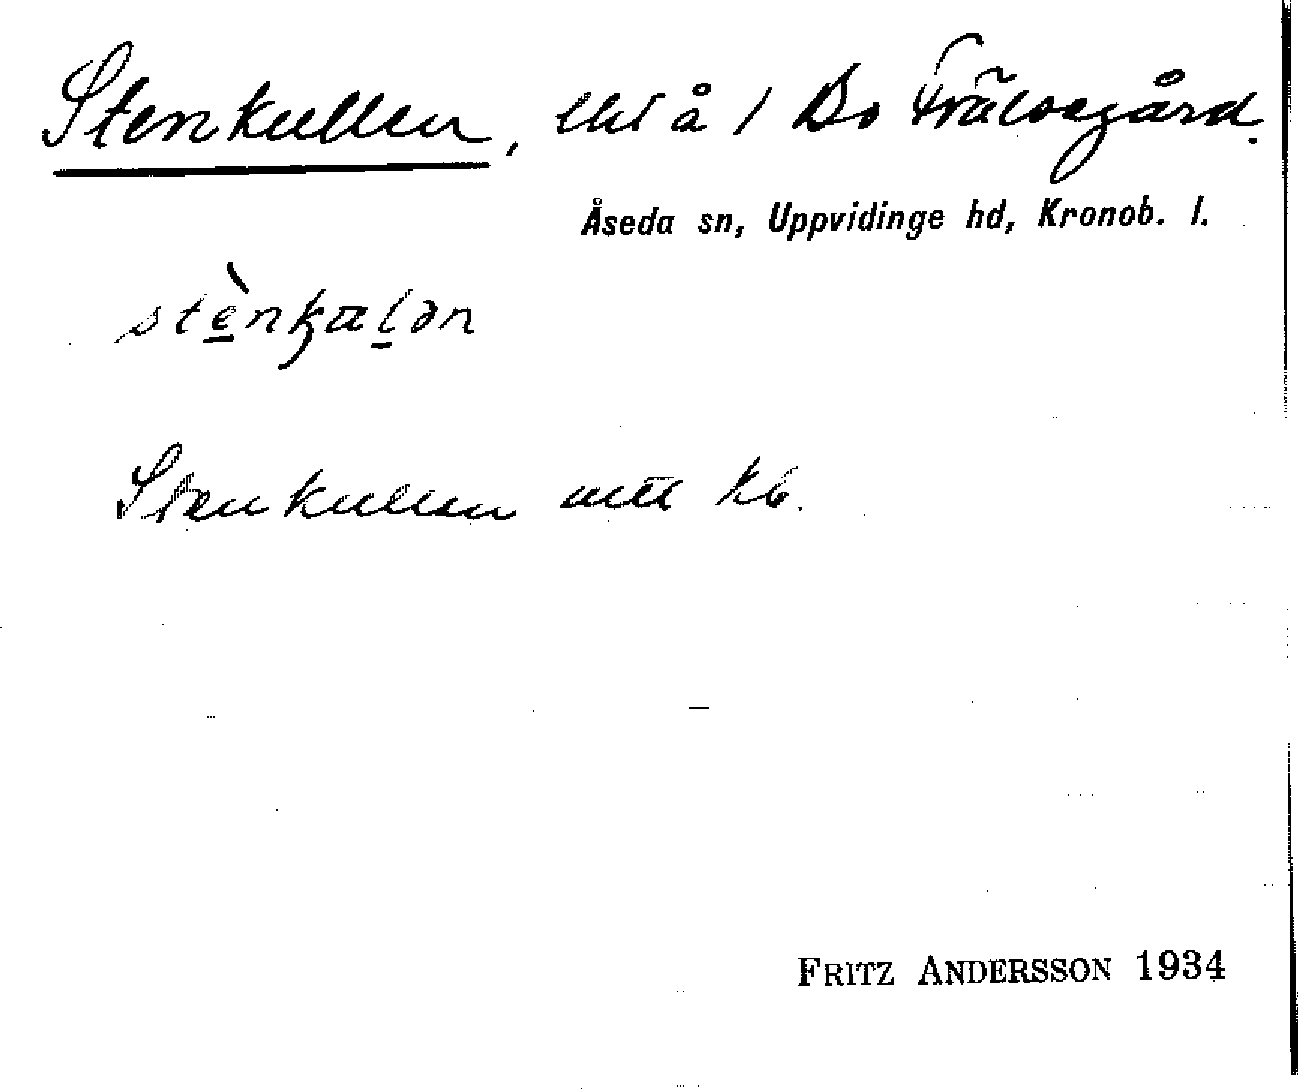 Stenkullen, lht å 1 Bo Frälsegård.
Åseda sn, Uppvidinge hd, Kronob. l.
stè̱nkaḻən
Stenkullen utt kb.
FRITZ ANDERSSON 1934